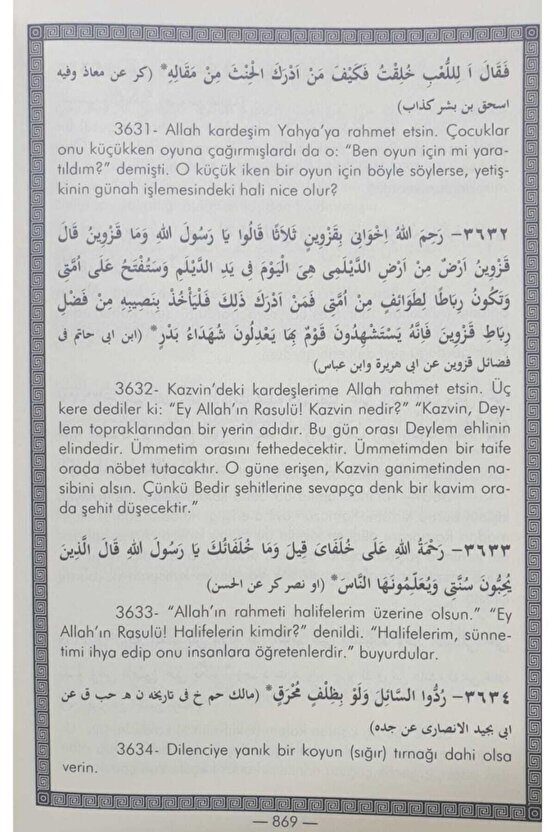 فَقَالَ اَ لِلُّعْبِ خُلِقْتُ فَكَيْفَ مَنْ اَدْرَكَ الْحِنْثَ مِنْ مَقَالِهِ* (كر عن معاذ وفيه
اسحق بن بشر كذاب)
3631- Allah kardeşim Yahya’ya rahmet etsin. Çocuklar
onu küçükken oyuna çağırmışlardı da o: “Ben oyun için mi yara-
tıldım?” demişti. O küçük iken bir oyun için böyle söylerse, yetiş-
kinin günah işlemesindeki hali nice olur?
٣٦٣٢- رَحِمَ اللهُ اِخْوَانِى بِقَزْوِينَ ثَلَاثًا قَالُوا يَا رَسُولَ اللهِ وَمَا قَزْوِينُ قَالَ
قَزْوِينُ اَرْضٌ مِنْ اَرْضِ الدَّيْلَمِى هِىَ الْيَوْمَ فِى يَدِ الدَّيْلَمِ وَسَتُفْتَحُ عَلَى اُمَّتِى
وَتَكُونُ رِبَاطًا لِطَوَائِفٍ مِنْ اُمَّتِى فَمَنْ اَدْرَكَ ذَلِكَ فَلْيَأْخُذْ بِنَصِيبِهِ مِنْ فَضْلِ
رِبَاطِ قَزْوِينَ فَاِنَّهُ يَسْتَشْهِدُونَ قَوْمٌ بِهَا يَعْدِلُونَ شُهَدَاءَ بَدْرٍ* (ابن ابى حاتم فى
فضائل قزوين عن ابى هريرة وابن عباس)
3632- Kazvin’deki kardeşlerime Allah rahmet etsin. Üç
kere dediler ki: “Ey Allah’ın Rasulü! Kazvin nedir?” “Kazvin, Dey-
lem topraklarından bir yerin adıdır. Bu gün orası Deylem ehlinin
elindedir. Ümmetim orasını fethedecektir. Ümmetimden bir taife
orada nöbet tutacaktır. O güne erişen, Kazvin ganimetinden na-
sibini alsın. Çünkü Bedir şehitlerine sevapça denk bir kavim ora-
da şehit düşecektir.”
٣٦٣٣- رَحْمَةُ اللهِ عَلَى خُلَفَاىَ قِيلَ وَمَا خُلَفَائُكَ يَا رَسُولَ اللهِ قَالَ الَّذِينَ
يُحِبُّونَ سُنَّتِى وَيُعَلِّمُونَهَا النَّاسَ* (او نصر كر عن الحسن)
3633- “Allah’ın rahmeti halifelerim üzerine olsun.” “Ey
Allah’ın Rasulü! Halifelerin kimdir?” denildi. “Halifelerim, sünne-
timi ihya edip onu insanlara öğretenlerdir.” buyurdular.
٣٦٣٤- رُدُّوا السَّائِلَ وَلَوْ بِظِلْفٍ مُحْرَقٍ* (مالك حم خ فى تاريخه ن هـ حب ق عن
ابى بجيد الانصارى عن جده)
3634- Dilenciye yanık bir koyun (sığır) tırnağı dahi olsa
verin.
— 869 —